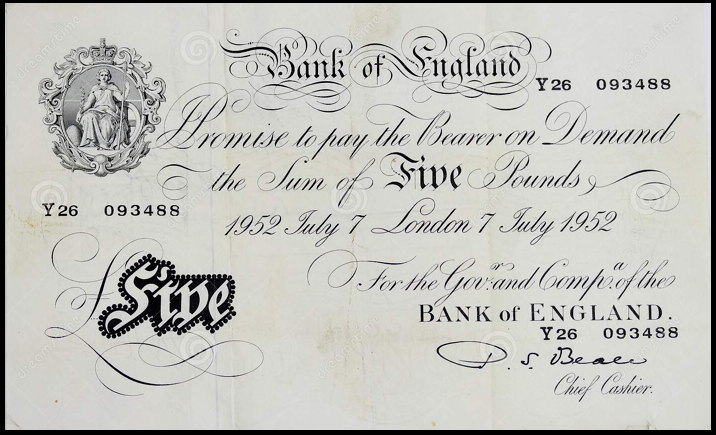 Bank of England
Y26 093488
I Promise to pay the Bearer on Demand
the Sum of Five Pounds
Y26 093488
1952 July 7 London 7 July 1952
£Five
For the Gov.r and Comp.a of the
BANK of ENGLAND.
Y26 093488
P. S. Beale
Chief Cashier.